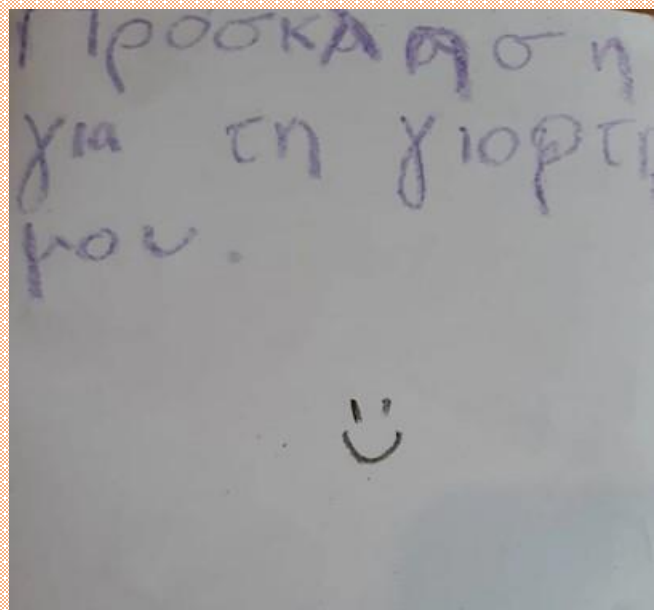 Πρόσκληση
για τη γιορτη
μου.